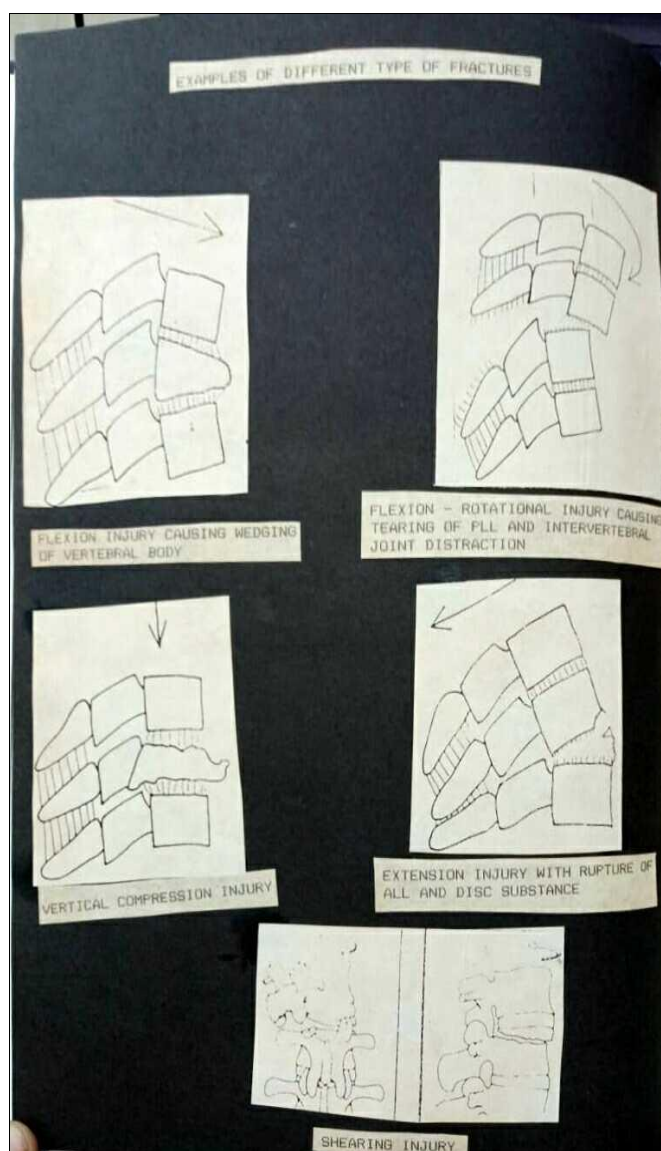 EXAMPLES OF DIFFERENT TYPE OF FRACTURES
FLEXION INJURY CAUSING WEDGING
OF VERTEBRAL BODY
FLEXION - ROTATIONAL INJURY CAUSING
TEARING OF PLL AND INTERVERTEBRAL
JOINT DISTRACTION
VERTICAL COMPRESSION INJURY
EXTENSION INJURY WITH RUPTURE OF
ALL AND DISC SUBSTANCE
SHEARING INJURY